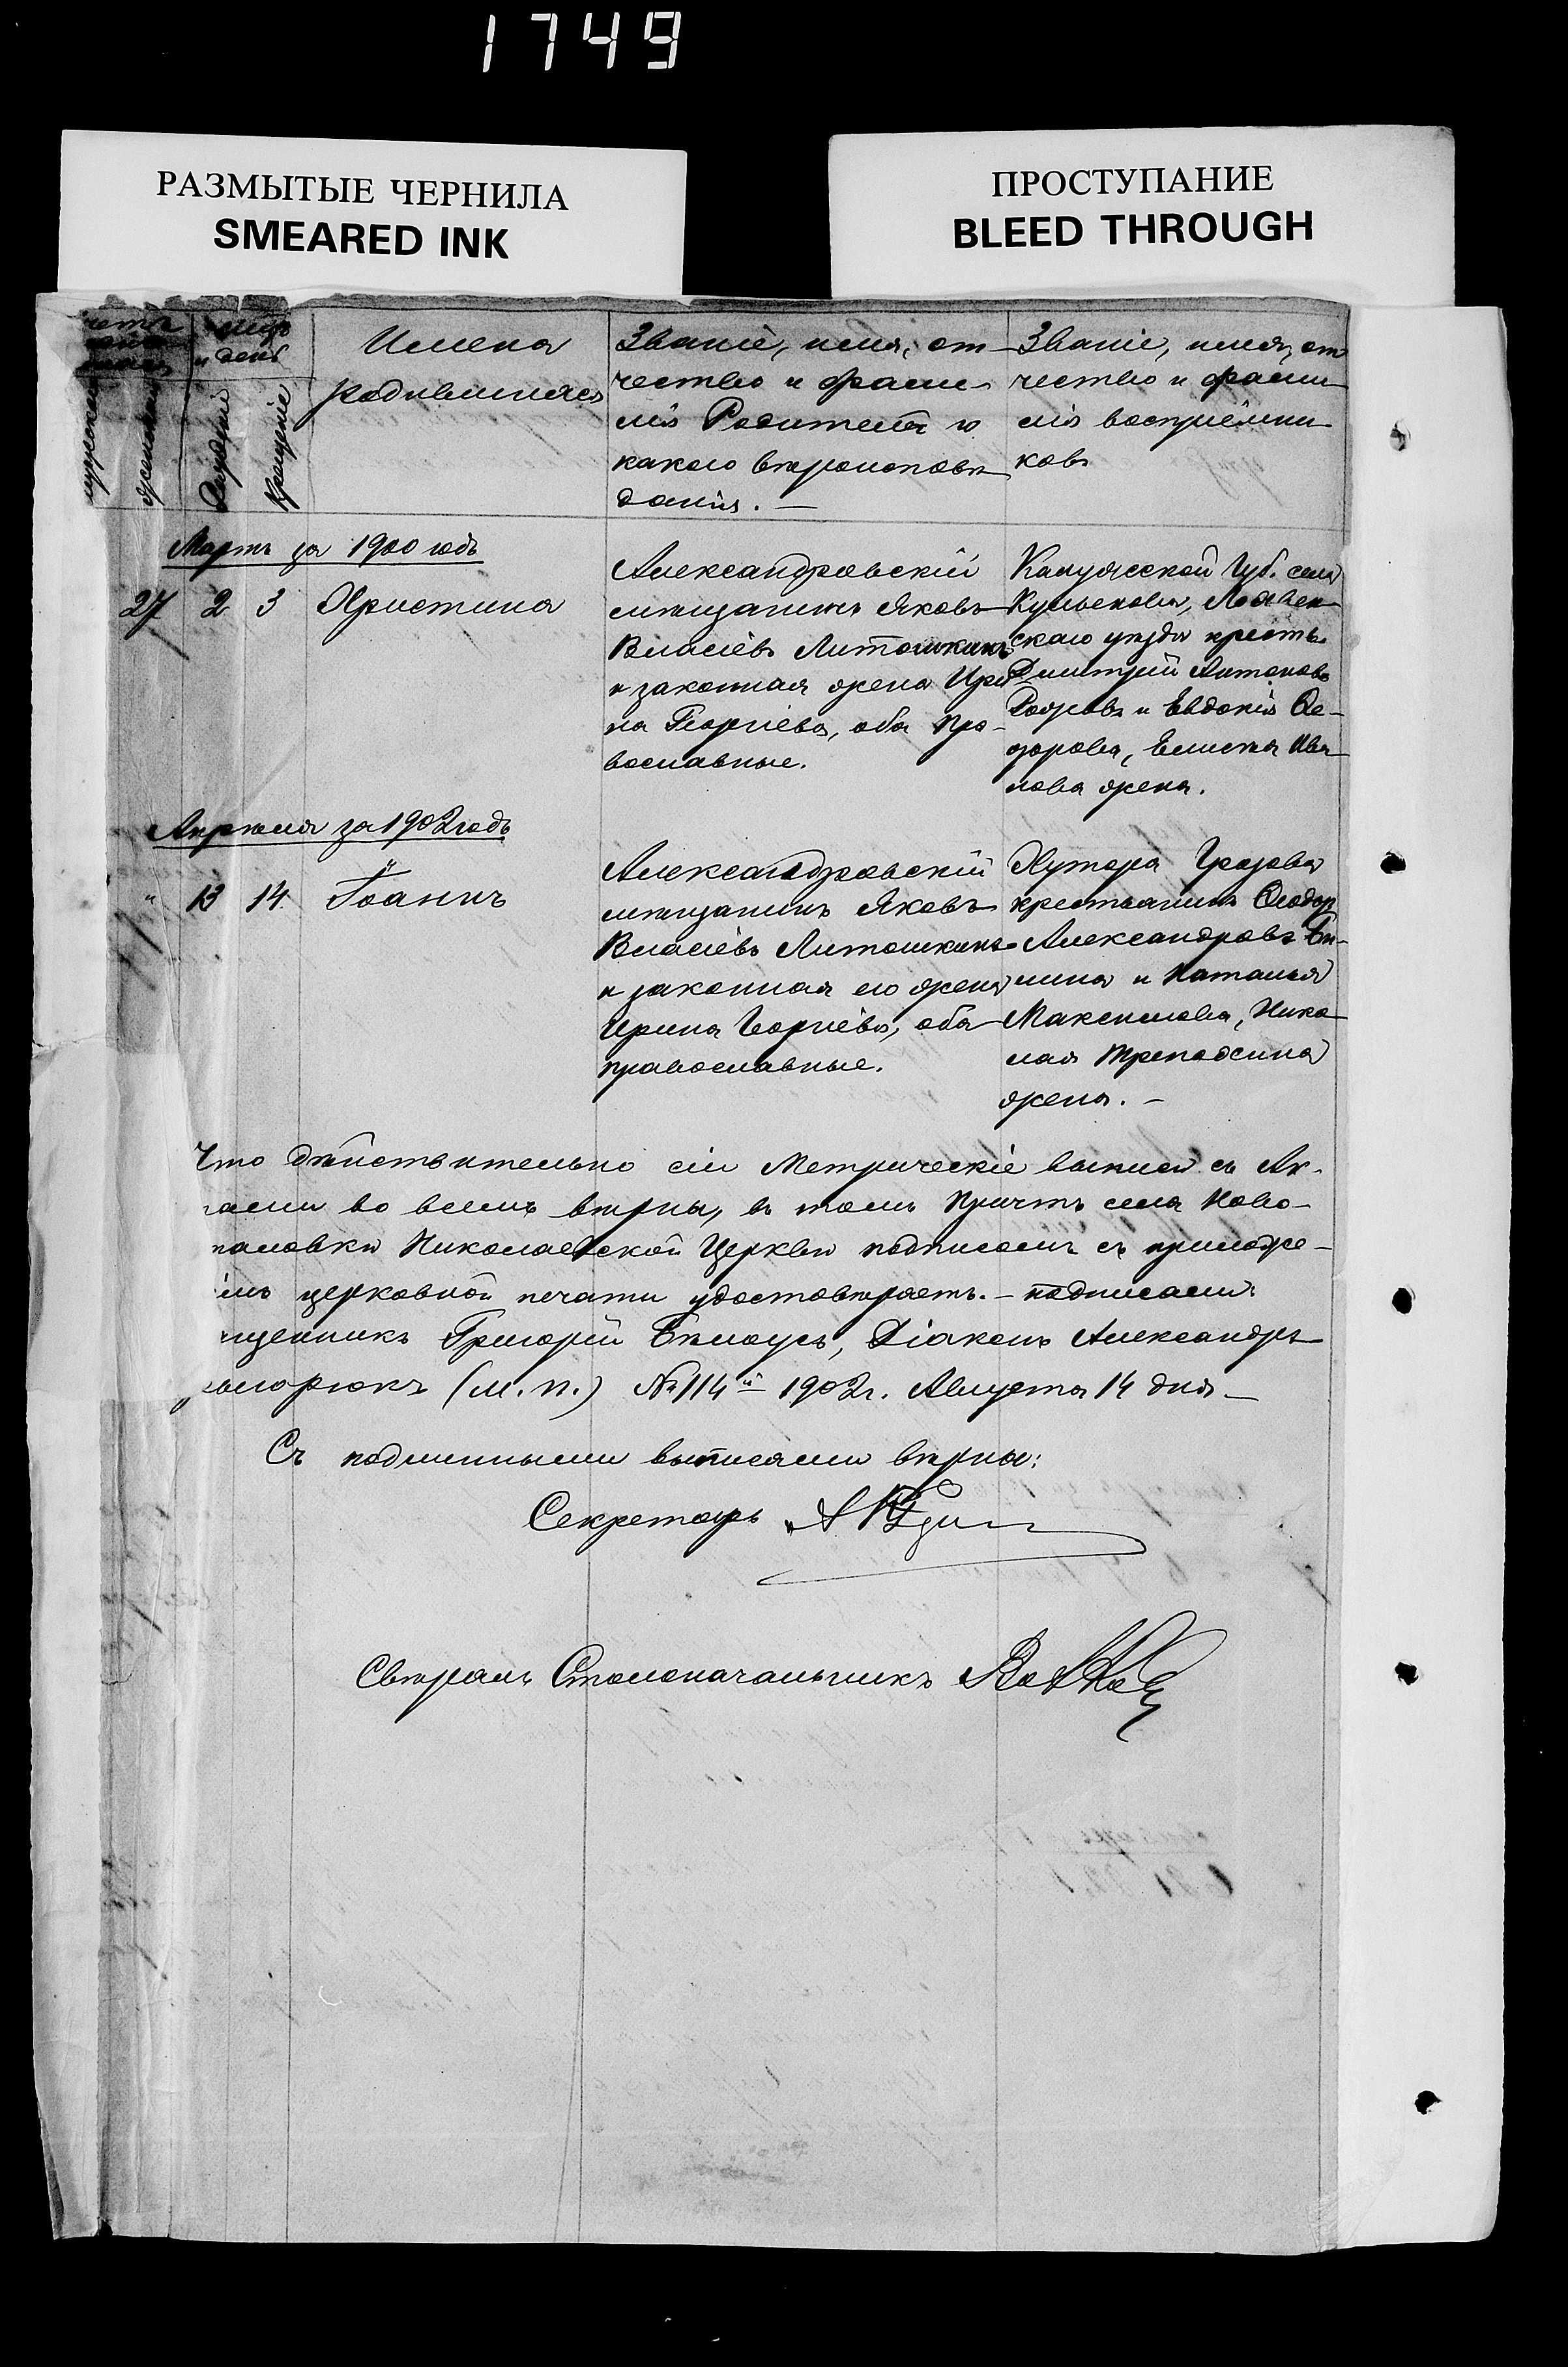 1749
РАЗМЫТЫЕ ЧЕРНИЛА
SMEARED INK
ПРОСТУПАНИЕ
BLEED THROUGH
и день
женскаго
Рожденія
Крещеніе
Имена
родившихся
Званіе, имя, от-
чество и фами-
лія Родителей и
какого вѣроисповѣ
данія. —
Званіе, имя, от
чество и фами
лія воспріемни
ковъ
Мартъ за 1900 годъ
27 2 3 Христина
Александровскій
мѣщанинъ Яковъ
Власіевъ Литошкинъ
и законная жена Ири
на Георгіева, оба пра-
вославные.
Калужской Губ. села
уѣзда крестьян.
Дмитрій Антоновъ
и Евдокія Ѳе-
дорова, Ива
нова жена.
Апрѣля за 1902 годъ
" 13 14 Іоаннъ
Александровскій
мѣщанинъ Яковъ
Власіевъ Литошкинъ
и законная его жена
Ирина Георгіева, оба
православные.
Хутора Грозова
крестьянинъ Ѳеодор
Александровъ
и Наталья
Максимова, Нико
лая
жена. —
Что дѣйствительно сіи Метрическіе выписи съ Ак-
тами во всемъ вѣрны, въ томъ Причтъ села Ново-
павловки Николаевской Церкви подписомъ съ приложе-
ніемъ церковной печати удостовѣряетъ. — подписали:
щенникъ Григорій Бѣлоусъ, Діаконъ Александръ
(М. П.) № 114й 1902 г. Августа 14 дня —
Съ подлинными выписями вѣрны:
Секретарь
Свѣрялъ Столоначальникъ